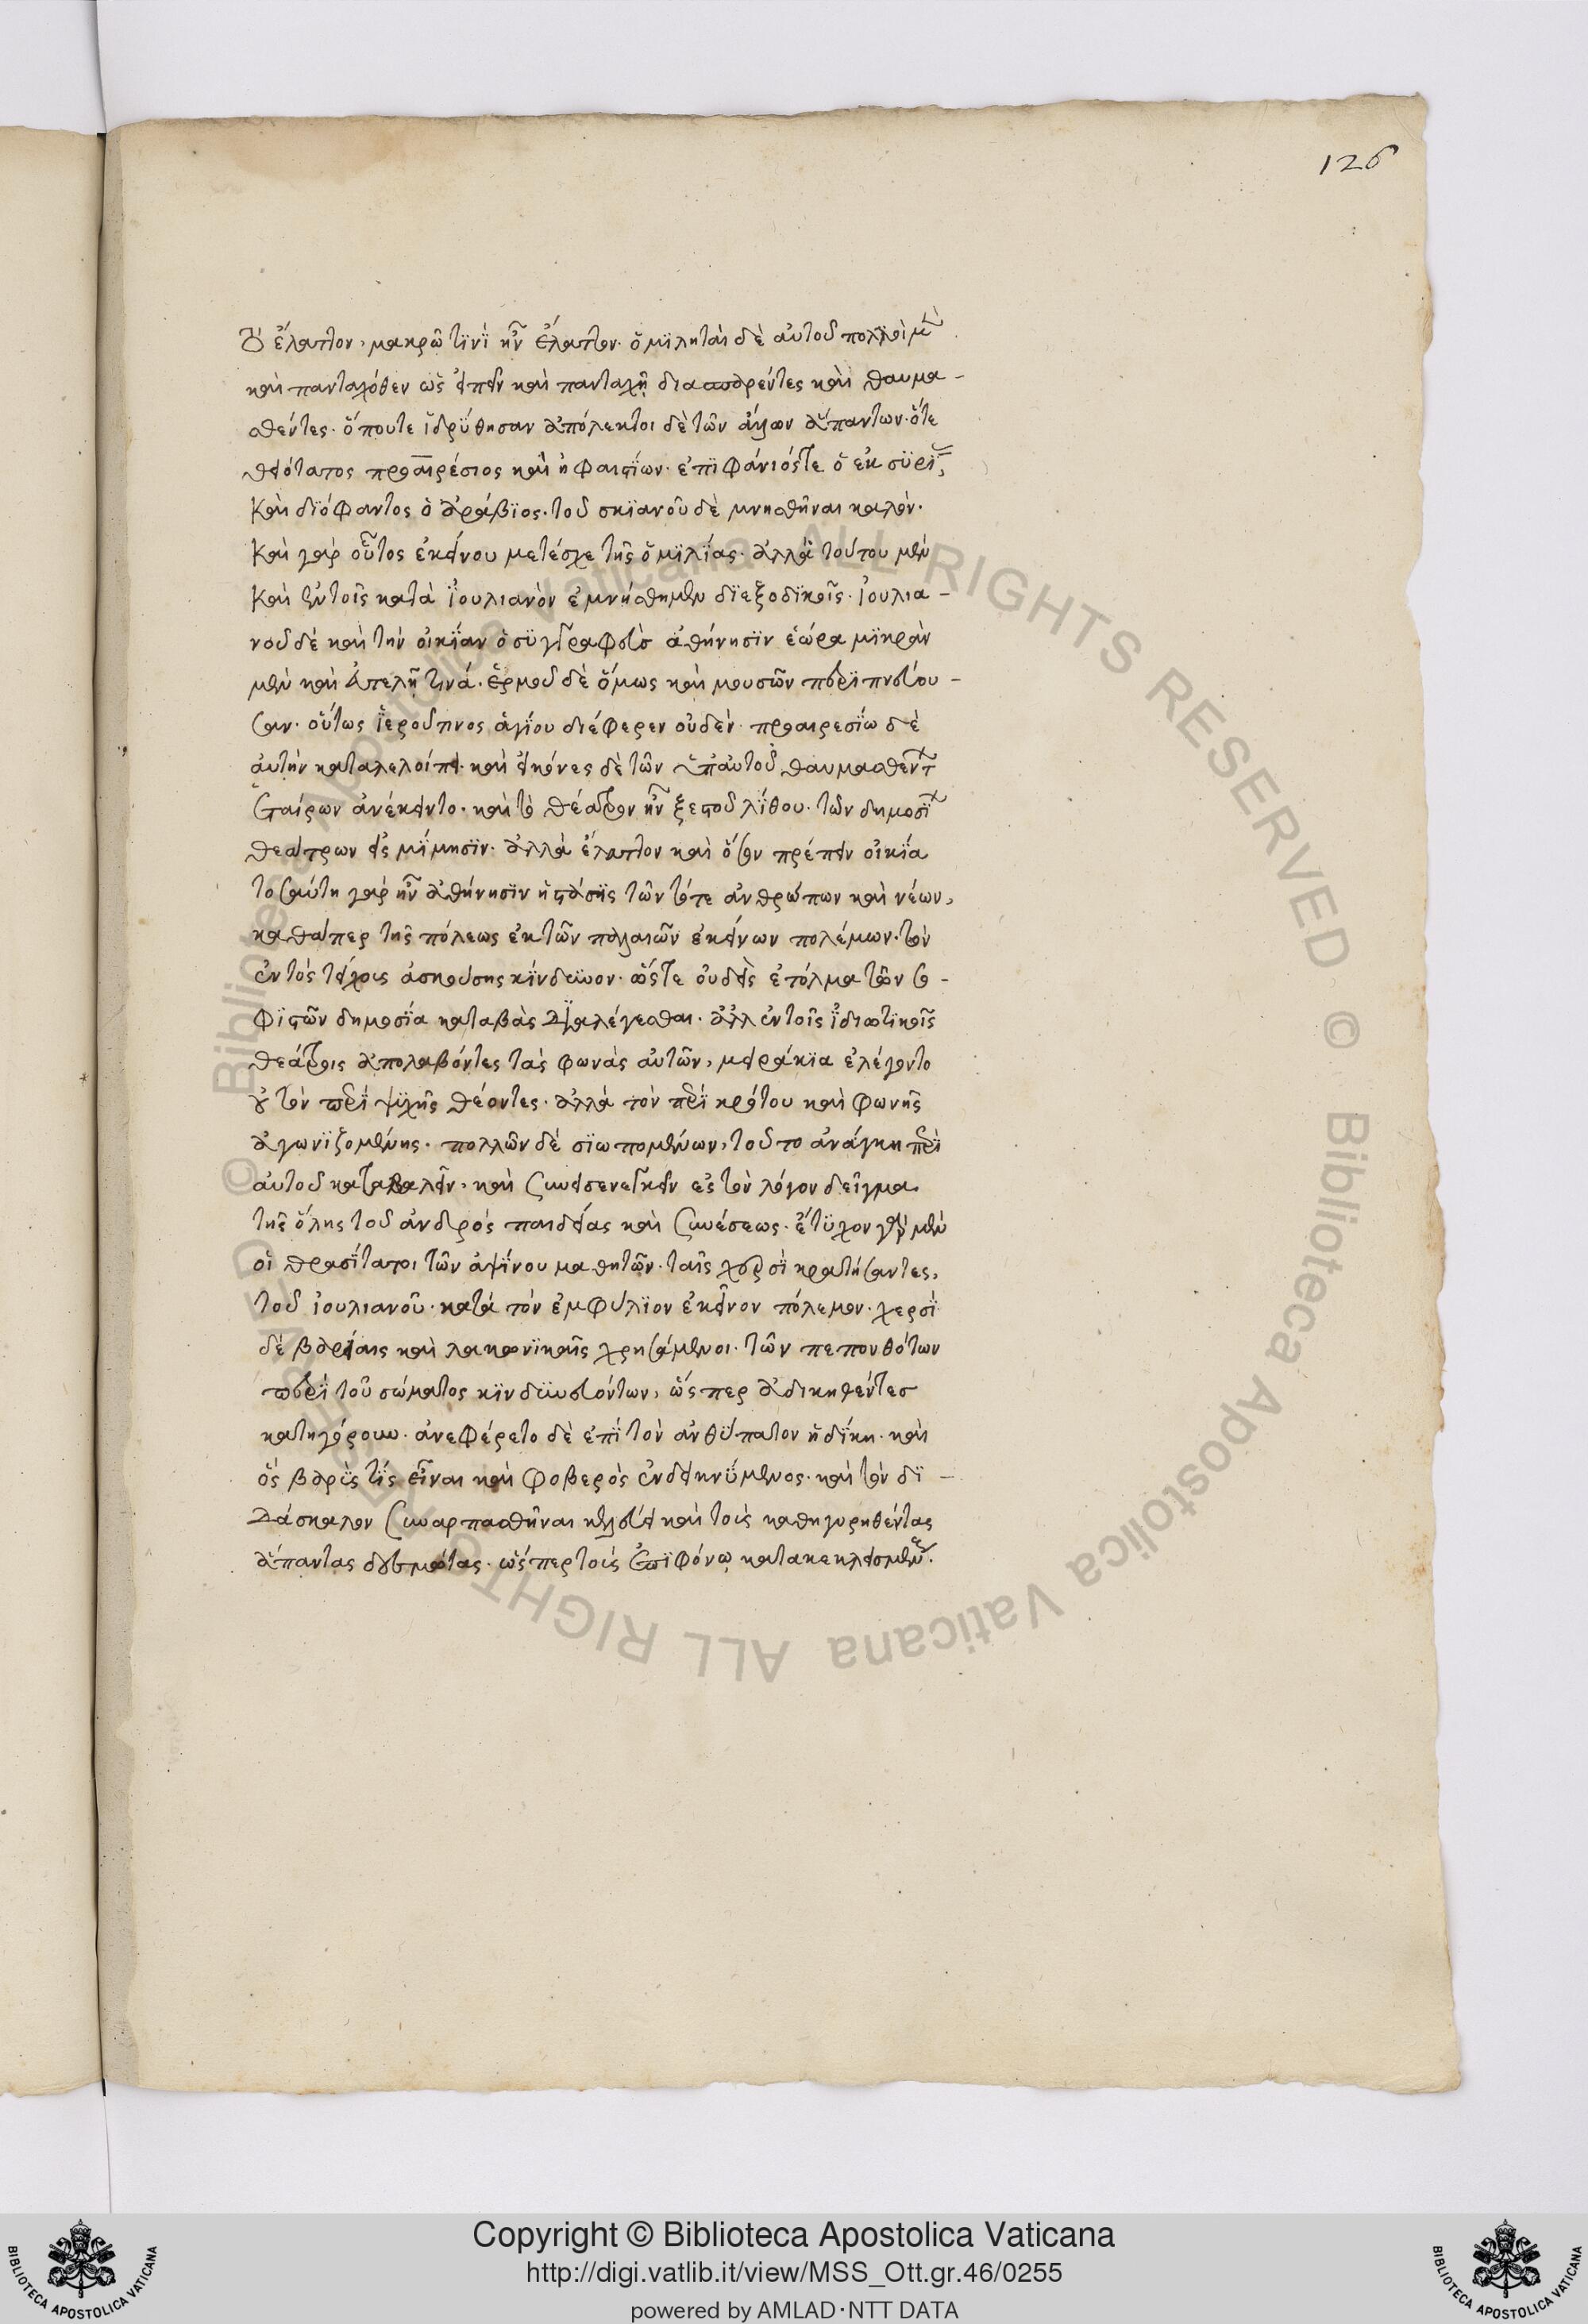 126
τὸ ἔλαττον, μακρῶ τϊνϊ ἦν ἔλαττον. ὁμϊληταὶ δὲ αὐτοῦ πολλοὶ μὲν
καὶ πανταχόθεν ὡς εἰπεῖν καὶ πανταχῆ διασπαρέντες καὶ θαυμα-
σθέντες. ὅπουτε ἱδρύθησαν ἀπόλεκτοι δὲ τῶν ἄλλων ἁπάντων. ὅτε
θειότατος προαιρέσιος καὶ ἡφαιστίων. ἐπϊφάνιόςτε ὁ ἐκ συρίας,
καὶ διόφαντος ὁ ἀράβϊος. τουσκϊανοῦ δὲ μνησθῆναι καλόν.
καὶ γὰρ οὗτος ἐκείνου μετέσχε τῆς ὁμϊλίας. ἀλλὰ τούτου μὲν
καὶ ἐν τοῖς κατὰ ἰουλιανὸν ἐμνήσθημεν διεξοδϊκοῖς. ἰουλια-
νοῦ δὲ καὶ τὴν οἰκίαν ὁ συγγραφεὺς ἀθήνησϊν ἑώρα μϊκρὰν
μὲν καὶ ἀτελῆ τινά. ἑρμοῦ δὲ ὅμως καὶ μουσῶν περϊπνέου-
σαν. οὕτως ἱεροῦ τινος ἁγίου διέφερεν οὐδέν. προαιρεσίω δὲ
αὐτὴν καταλελοίπει. καὶ εἰκόνες δὲ τῶν ὑπ αὐτοῦ θαυμασθέντων
ἑταίρων ἀνέκειντο. καὶ τὸ θέατρον ἦν ξεστοῦ λίθου. τῶν δημοσίων
θεάτρων εἰς μίμησϊν. ἀλλὰ ἔλαττον καὶ ὅσον πρέπειν οἰκία
τοσαύτη γὰρ ἦν ἀθήνησϊν ἡ στάσις τῶν τότε ἀνθρώπων καὶ νέων,
καθάπερ τῆς πόλεως ἐκ τῶν παλαιῶν ἐκείνων πολέμων. τὸν
ἐντὸς τείχους ἀσκούσης κίνδυνον. ὥστε οὐδεὶς ἐτόλμα τῶν σο-
φϊστῶν δημοσία καταβὰς διαλέγεσθαι. ἀλλ ἐν τοῖς ἰδιωτϊκοῖς
θεάτροις ἀπολαβόντες τὰς φωνὰς αὐτῶν, μειράκια ἐλέγοντο
οὐ τὸν περὶ ψυχῆς θέοντες. ἀλλὰ τὸν περὶ κρότου καὶ φωνῆς
ἀγωνϊζομένης. πολλῶν δὲ σϊωπομένων, τοῦτο ἀνάγκη περὶ
αὐτοῦ καταβαλεῖν, καὶ συνεισενεγκεῖν ἐς τὸν λόγον δεῖγμα
τῆς ὅλης τοῦ ἀνδρὸς παιδείας καὶ συνέσεως. ἔτυχον γὰρ μὲν
οἱ θρασύτατοι τῶν ἀψίνου μαθητῶν. ταῖς χερσὶ κρατήσαντες,
τοῦ ἰουλιανοῦ. κατὰ τὸν ἐμφύλϊον ἐκεῖνον πόλεμον. χερσὶ
δὲ βαρείαις καὶ λακωνϊκαῖς χρησάμενοι. τῶν πεπονθότων
περὶ τοῦ σώματος κϊνδυνευόντων, ὥςπερ ἀδικηθέντες
κατηγόρουν. ἀνεφέρετο δὲ ἐπὶ τὸν ἀνθύπατον ἡ δίκη. καὶ
ὃς βαρύς τις εἶναι καὶ φοβερὸς ἐνδεικνύμενος. καὶ τὸν δϊ-
δάσκαλον συναρπασθῆναι κελεύει καὶ τοὺς κατηγορηθέντας
ἅπαντας δεσμώτας. ὥςπερ τοὺς ἐπὶ φόνω κατακεκλεισμένους.
Copyright © Biblioteca Apostolica Vaticana
http://digi.vatlib.it/view/MSS_Ott.gr.46/0255
powered by AMLAD·NTT DATA
BIBLIOTECA APOSTOLICA VATICANA
BIBLIOTECA APOSTOLICA VATICANA
© Biblioteca Apostolica Vaticana ALL RIGHTS RESERVED © Biblioteca Apostolica Vaticana ALL RIGHTS RESERVED